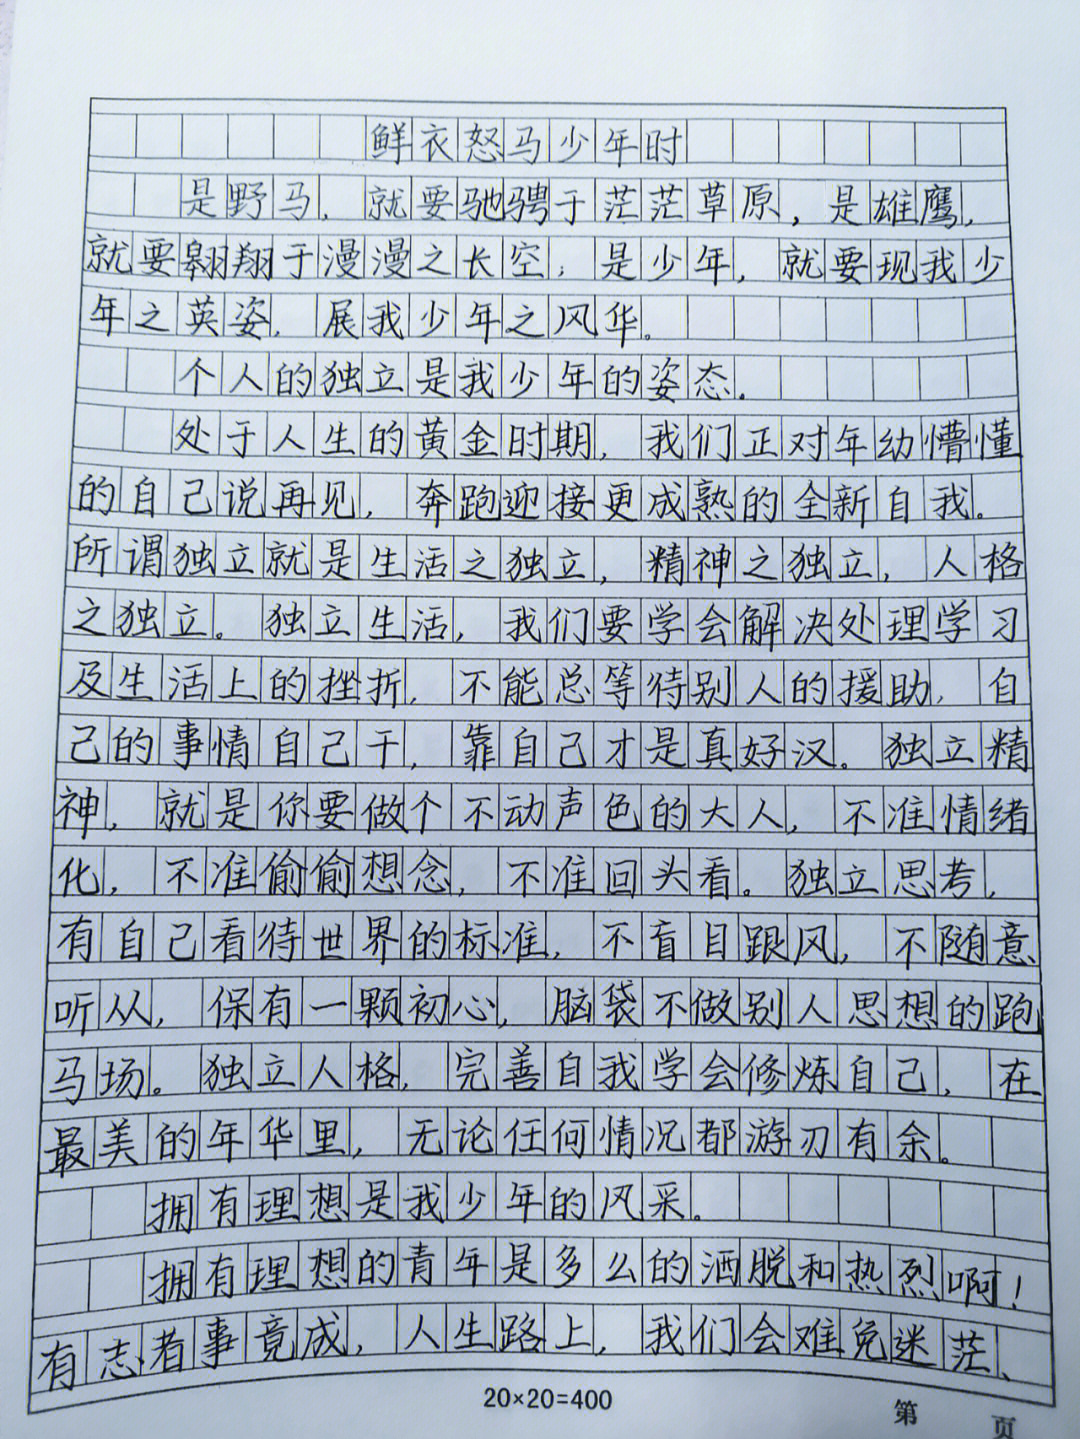 鲜衣怒马少年时
是野马，就要驰骋于茫茫草原，是雄鹰，
就要翱翔于漫漫之长空；是少年，就要现我少
年之英姿，展我少年之风华。
个人的独立是我少年的姿态。
处于人生的黄金时期，我们正对年幼懵懂
的自己说再见，奔跑迎接更成熟的全新自我。
所谓独立就是生活之独立，精神之独立，人格
之独立。独立生活，我们要学会解决处理学习
及生活上的挫折，不能总等待别人的援助，自
己的事情自己干，靠自己才是真好汉。独立精
神，就是你要做个不动声色的大人，不准情绪
化，不准偷偷想念，不准回头看。独立思考，
有自己看待世界的标准，不盲目跟风，不随意
听从，保有一颗初心，脑袋不做别人思想的跑
马场。独立人格，完善自我学会修炼自己，在
最美的年华里，无论任何情况都游刃有余。
拥有理想是我少年的风采。
拥有理想的青年是多么的洒脱和热烈啊！
有志者事竟成，人生路上，我们会难免迷茫、
20×20=400
第 页